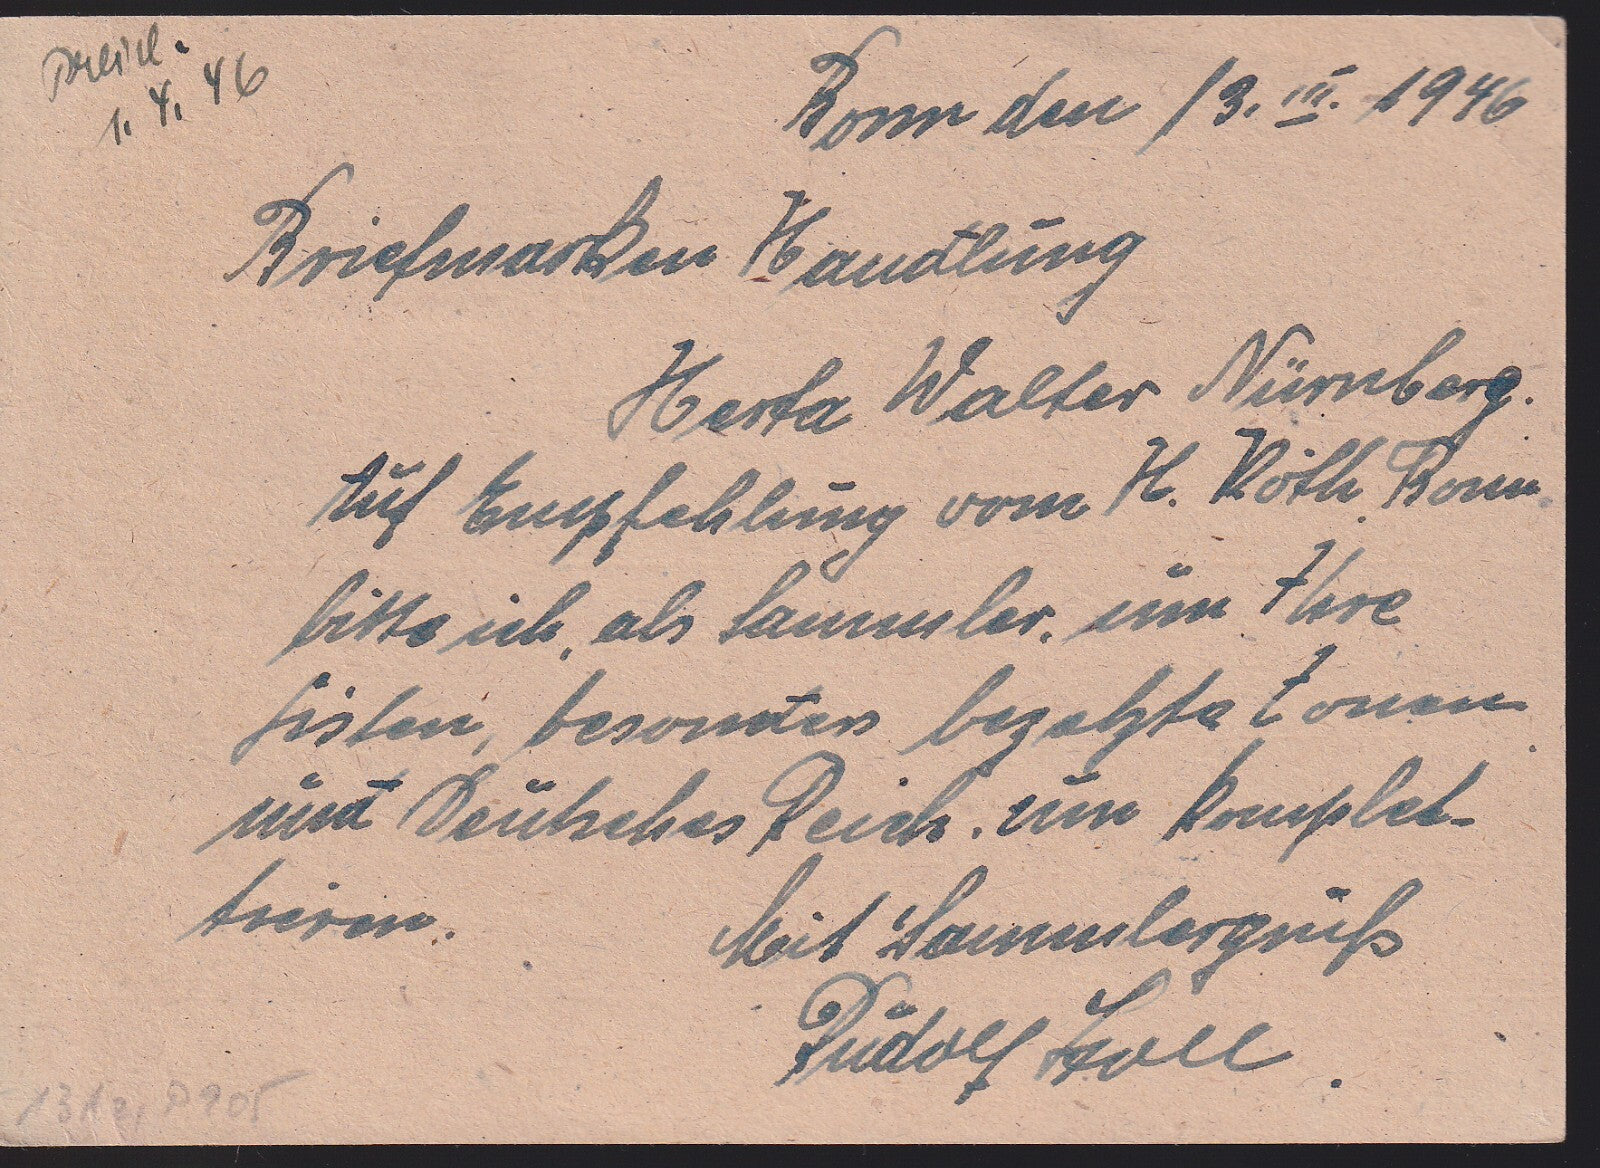 1. 4. 46
Bonn den 13. III. 1946
Briefmarken Handlung
Herta Walter Nürnberg.
Auf Empfehlung vom H. Röth. Bonn.
bitte ich, als Sammler. um Ihre
Listen, besonders besetzte Zonen
und Deutsches Reich. um komplet-
tieren.
Mit Sammlergruß
Rudolf